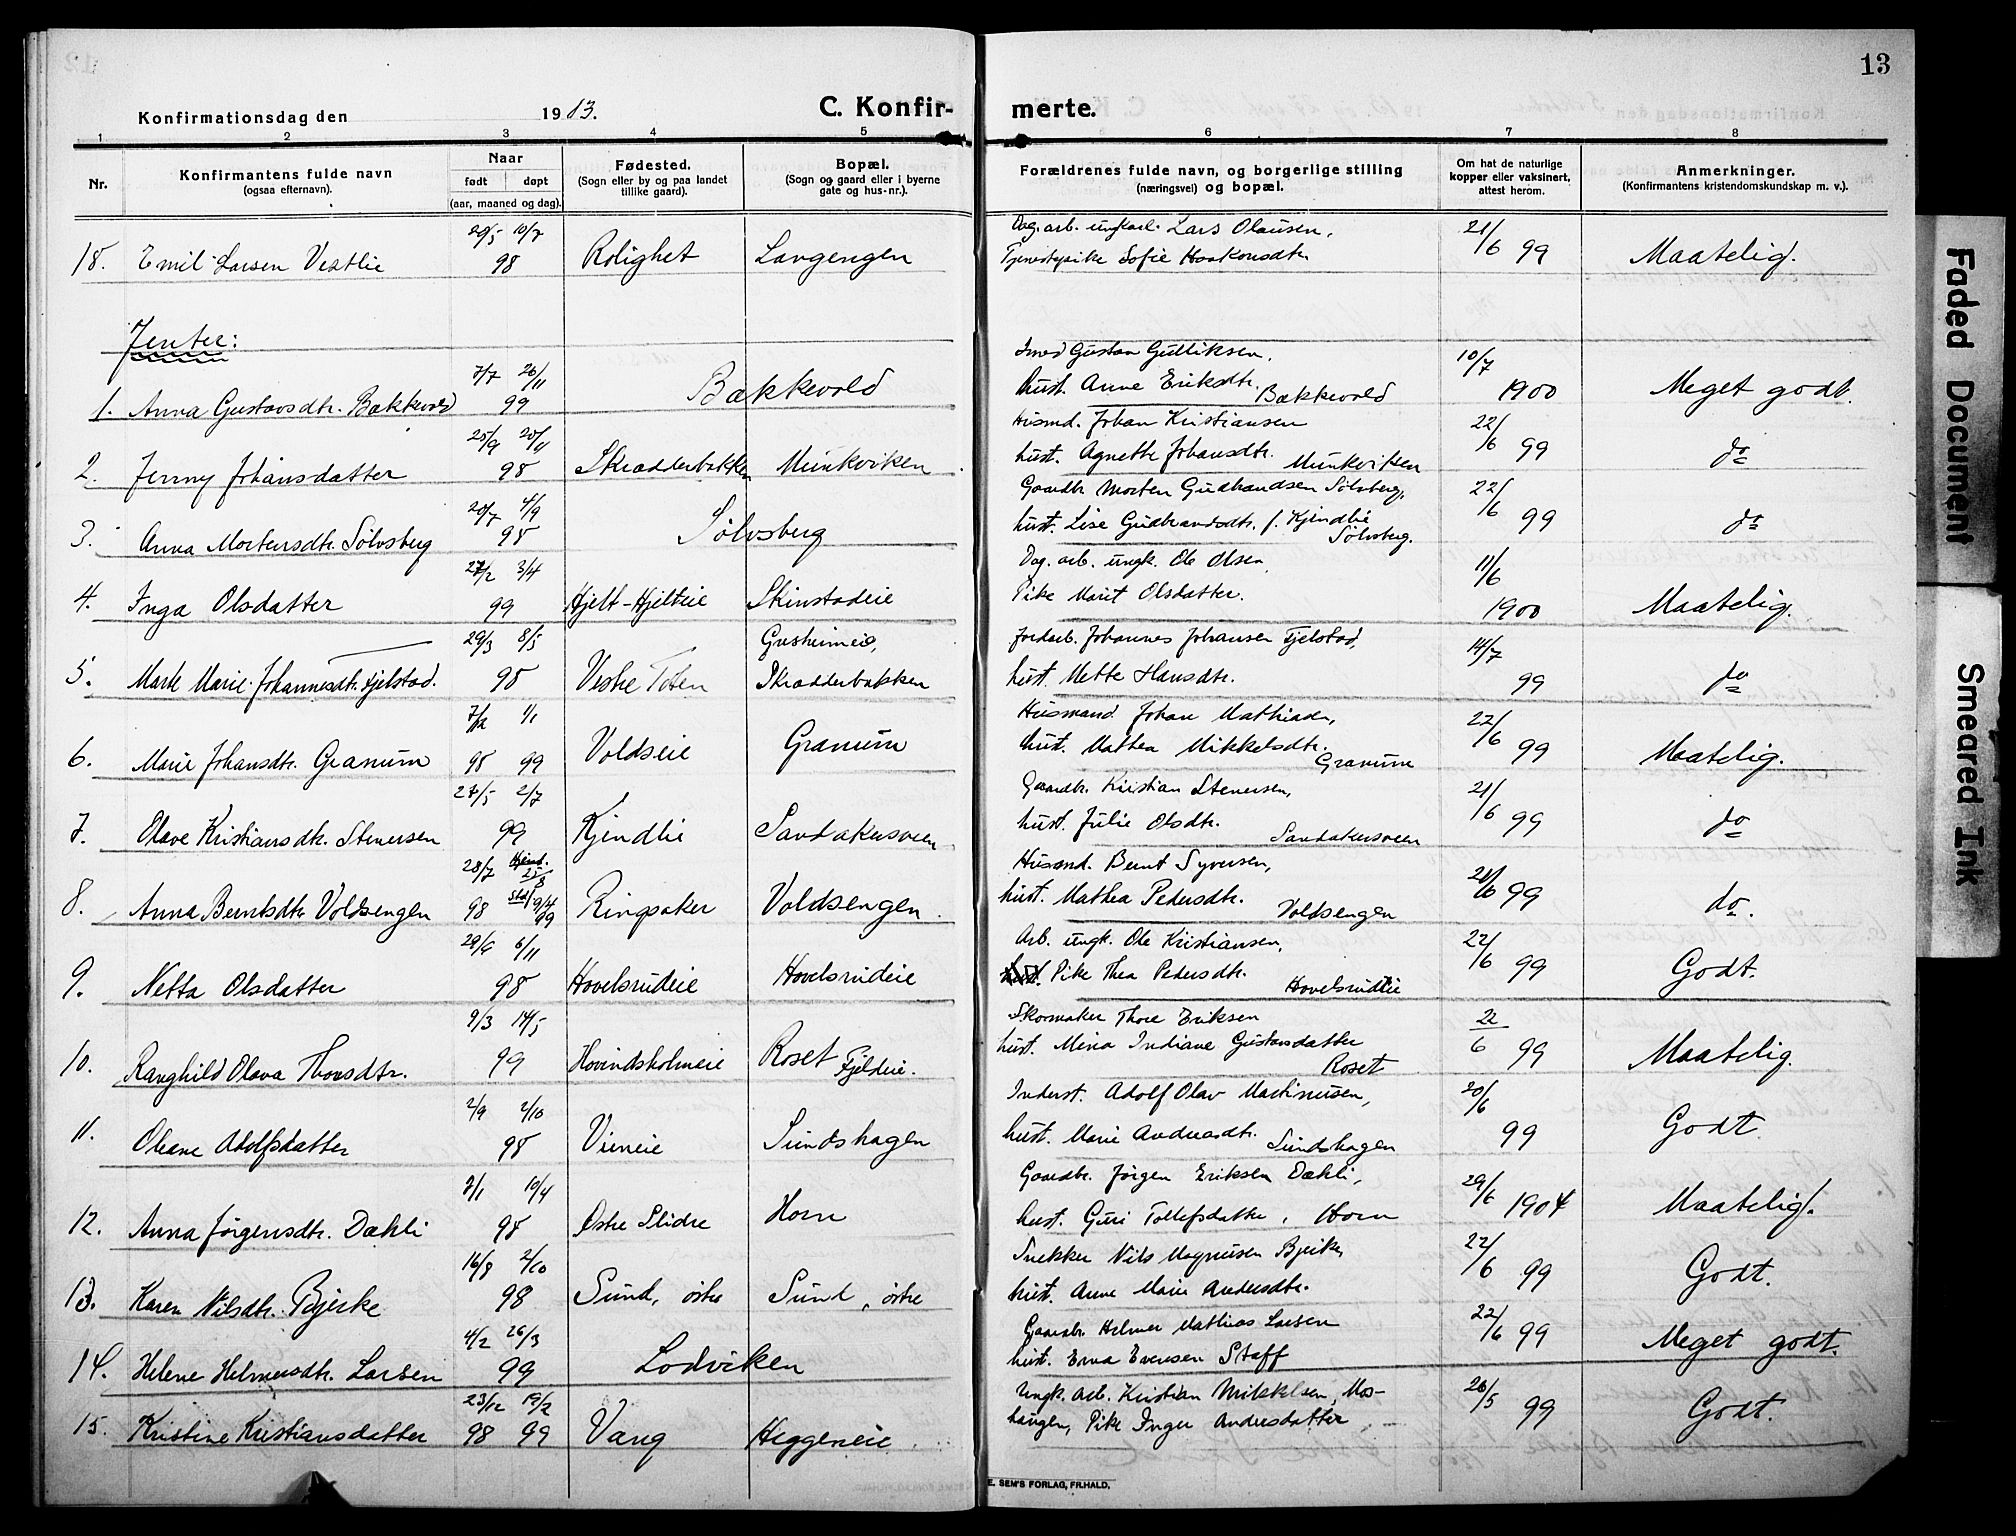 13
Konfirmationsdag den 1913. C. Konfir- merte.
1 2 3 4 5 6 7 8
Nr. Konfirmantens fulde navn (ogsaa efternavn). Naar født døpt (aar, maaned og dag). Fødested. (Sogn eller by og paa landet tillike gaard). Bopæl. (Sogn og gaard eller i byerne gate og hus-nr.). Forældrenes fulde navn, og borgerlige stilling (næringsvei) og bopæl. Om hat de naturlige kopper eller vaksinert, attest herom. Anmerkninger. (Konfirmantens kristendomskundskap m. v.).
Dag. arb. ungkarl. Lars Olausen, 21/6 99
18. Emil Larsen Vestlie 98 10/7 Rolighet Langengen Tjenestepike Sofie Haakonsdtr. Maatelig.
Jenter:
7/7 26/11 Gustav Gulliksen, 10/7
1. Anna Gustavsdtr. Bækkevold 99 Bækkevold hust. Anne Eriksdtr. Bækkevold 1900 Meget godt.
25/9 20/11 Husmd. Johan Kristiansen 22/6
2. Jenny Johansdatter 98 Skrædderbakken Munkviken hust. Agnethe Johansdtr. Munkviken 99 do
20/7 4/9 Gaardbr. Morten Gudbrandsen Sølvsberg, 22/6
3. Anna Mortensdtr. Sølvsberg 98 Sølvsberg hust. Lise Gudbrandsdtr. f. Kjendlie Sølvsberg. 99 do
27/2 3/4 Dag. arb. ungk. Ole Olsen, 11/6
4. Inga Olsdatter 99 Hjelt-Hjelteie Skinstadeie Pike Marit Olsdatter. 1900 Maatelig.
29/3 8/5 Jordarb. Johannes Johansen Fjelstad, 14/7
5. Marte Marie Johannesdtr. Fjelstad. 98 Vestre Toten Skrædderbakken hust. Mette Hansdtr. 99 do
1/1 Husmand Johan Mathiasen, 22/6
6. Marie Johansdtr. Granum 98 99 Voldseie Granum hust. Mathea Mikkelsdtr. Granum 99 Maatelig.
27/5 2/7 Gaardbr. Kristian Stenersen, 21/6
7. Olave Kristiansdtr. Stenersen 99 Kjendlie Sandakersveen hust. Julie Olsdtr. Sandakersveen 99 do
28/7 Hjemd. 25/8 Husmd. Bernt Syversen,
8. Anna Berntsdtr. Voldsengen 98 Stadf 9/4 99 Ringsaker Voldsengen. hust. Mathea Pedersdtr. Voldsengen 99 do.
29/6 6/11 Arb. ungk. Ole Kristiansen, 22/6
9. Netta Olsdatter 98 Hovelsrudeie Hovelsrudeie Pike Thea Pedersdtr. Hovelsrudeie 99 Godt.
9/3 14/5 Skomaker Thore Eriksen 22/6
10. Ranghild Olava Thoresdtr. 99 Hovindsholmeie Roset Fjeldeie. hust. Mina Indiane Gustavsdatter Roset 99 Maatelig.
2/9 2/10 Inderst. Adolf Olav Martinusen, 20/6
11. Oleane Adolfsdatter 98 Vieneie Sundshagen hust. Marie Andreasdtr. Sundshagen 99 Godt
7/1 10/4 Gaardbr. Jørgen Eriksen Dæhli, 29/6
12. Anna Jørgensdtr. Dæhli 98 Østre Slidre Horn hust. Guri Tollefsdatter, Horn 1904 Maatelig.
16/8 2/10 Snekker Nils Magnusen Bjerke, 22/6
13. Karen Nilsdtr. Bjerke 98 Sund, østre Sund, østre hust. Anne Marie Andersdtr. 99 Godt.
4/2 26/3 Gaardbr. Helmer Mathias Larsen 22/6
14. Helene Helmersdtr. Larsen 99 Lodviken hust. Erna Evensen Staff 99 Meget godt.
23/12 19/2 Ungk. Arb. Kristian Mikkelsen, Mos- 26/5
15. Kristine Kristiansdatter 98 99 Vang Heggeneie. haugen, Pike Inger Andersdatter 99 Godt.
E. SEM'S FORLAG, FR.HALD,
Faded Document
Smeared Ink